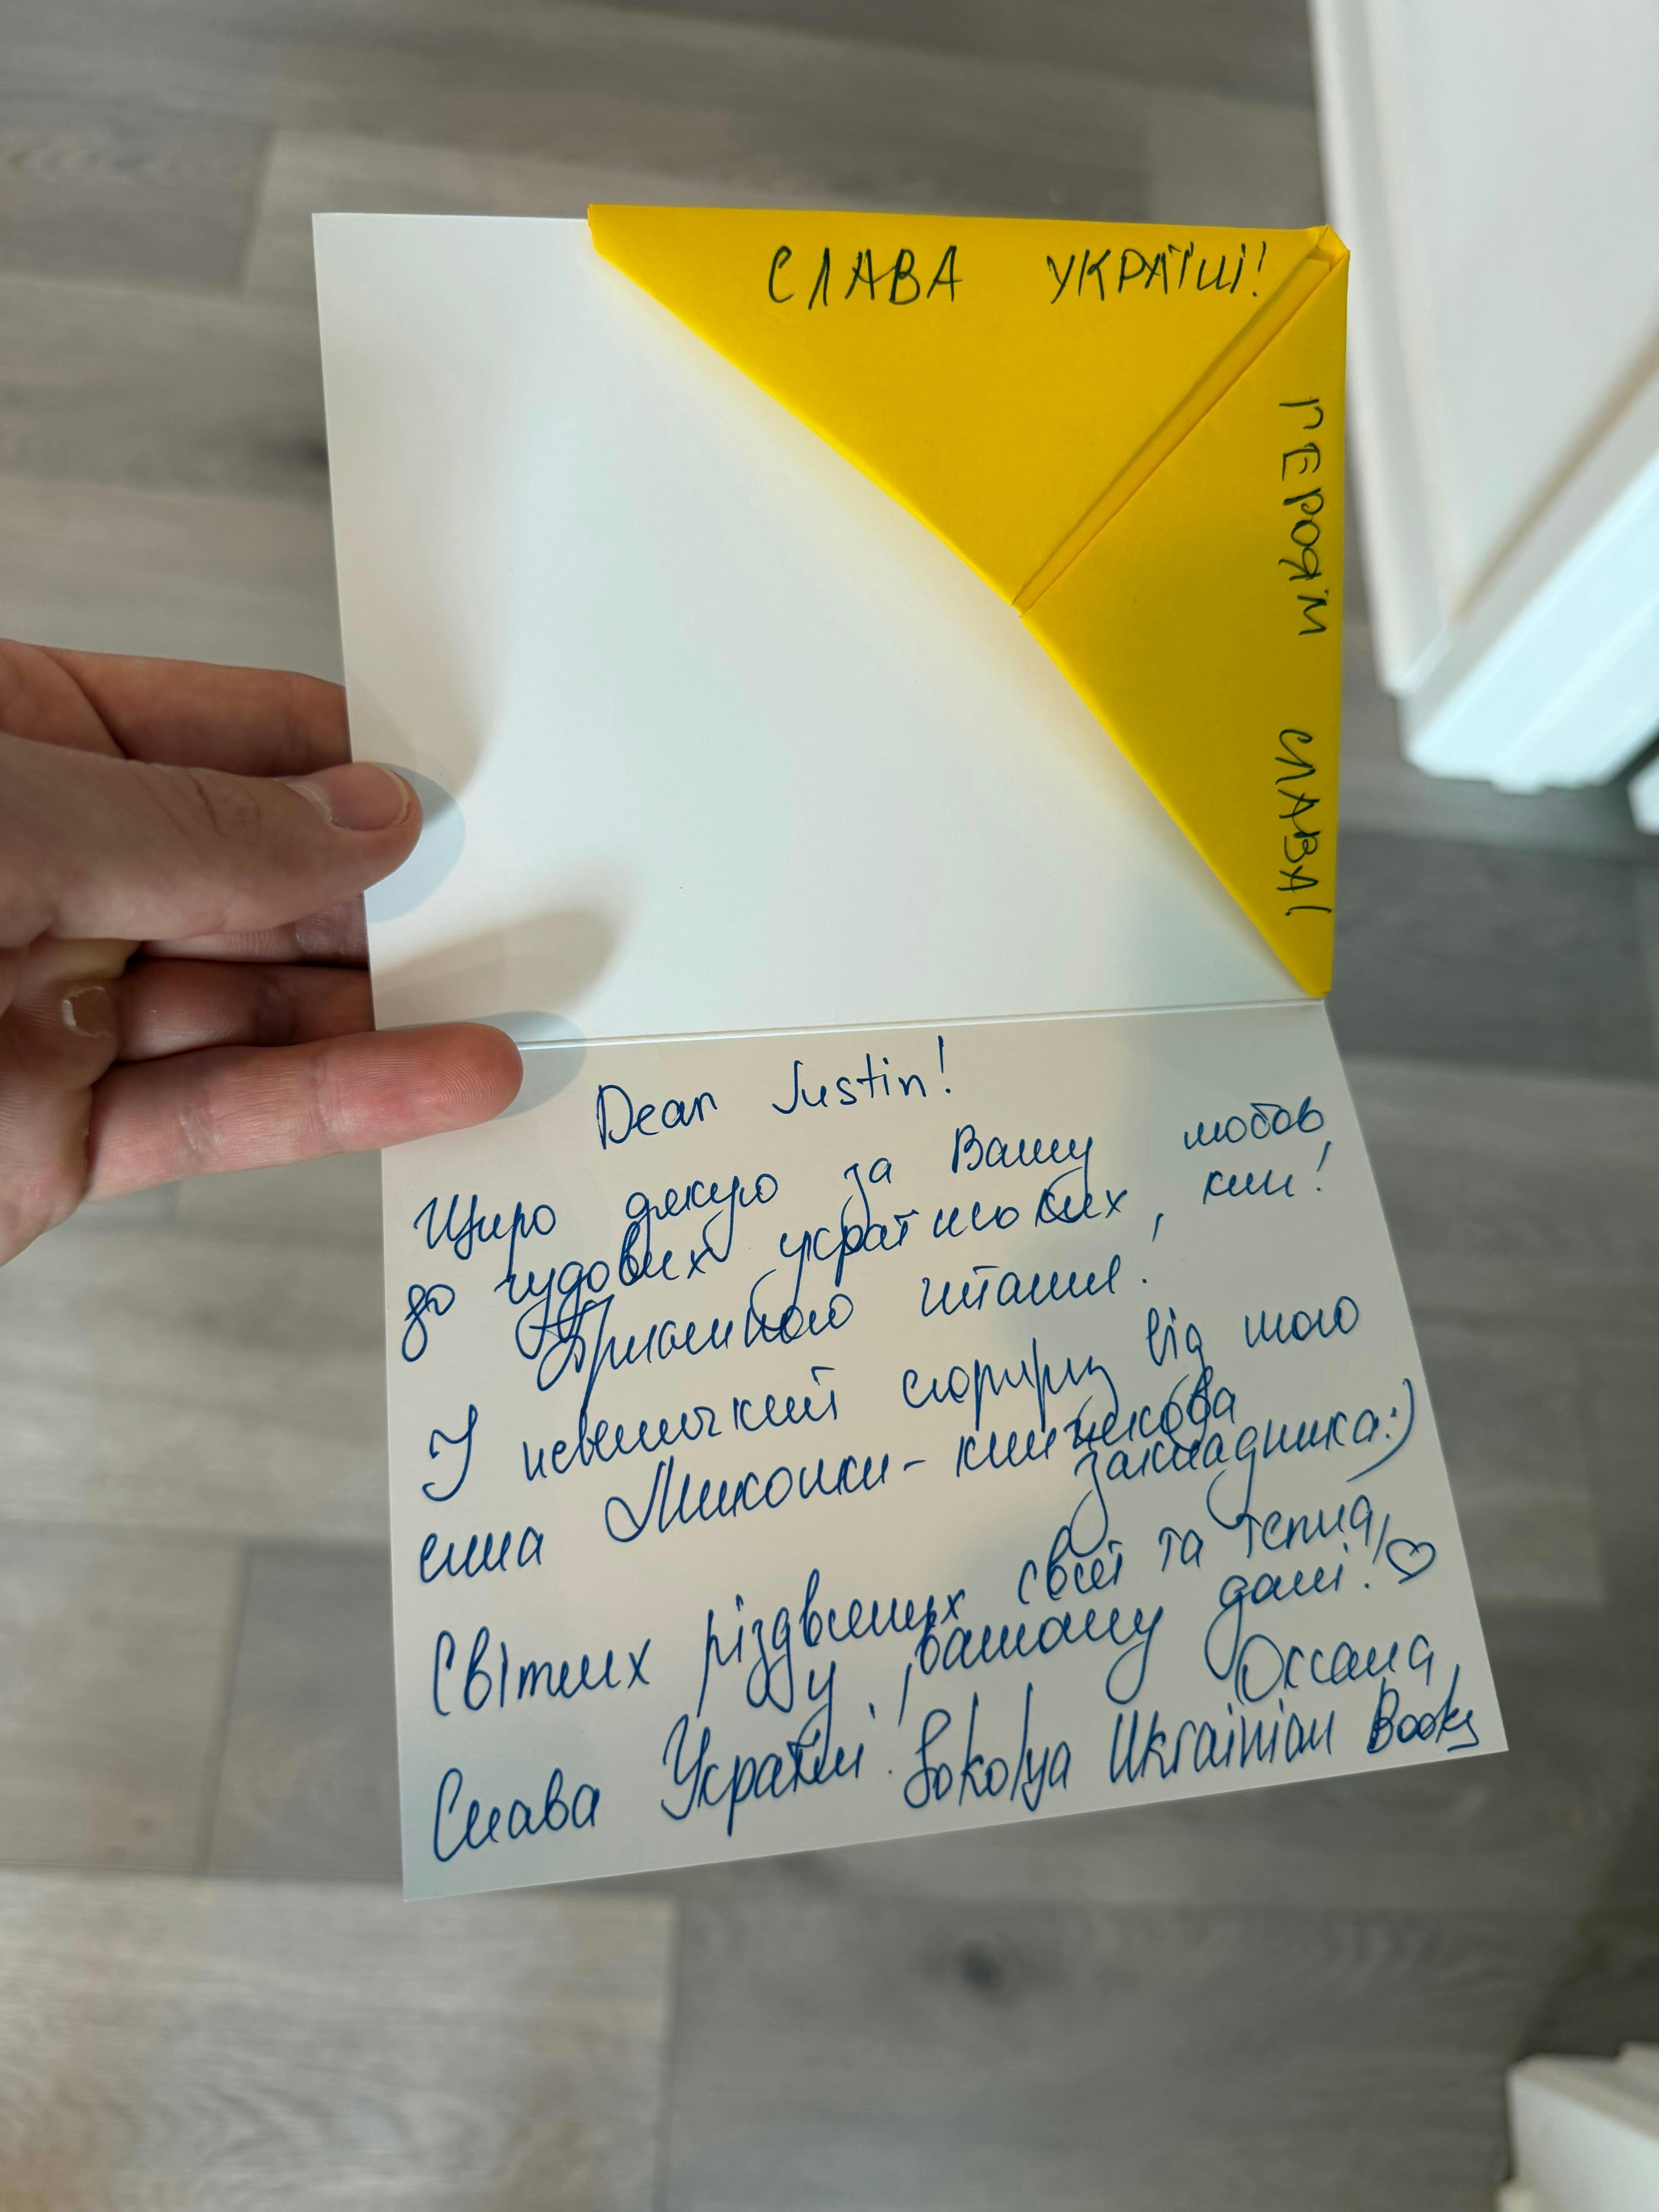 СЛАВА УКРАЇНІ!
ГЕРОЯМ СЛАВА!
Dear Justin!
Щиро дякую за Вашу любов
до чудових українських книг!
Приємного читання!
І невеличкий сюрприз від мого
сина Миколки - книжкова
закладинка:)
Світлих різдвяних свят та тепла
у вашому домі! ♡
Оксана,
Слава Україні! Sokolya Ukrainian Books